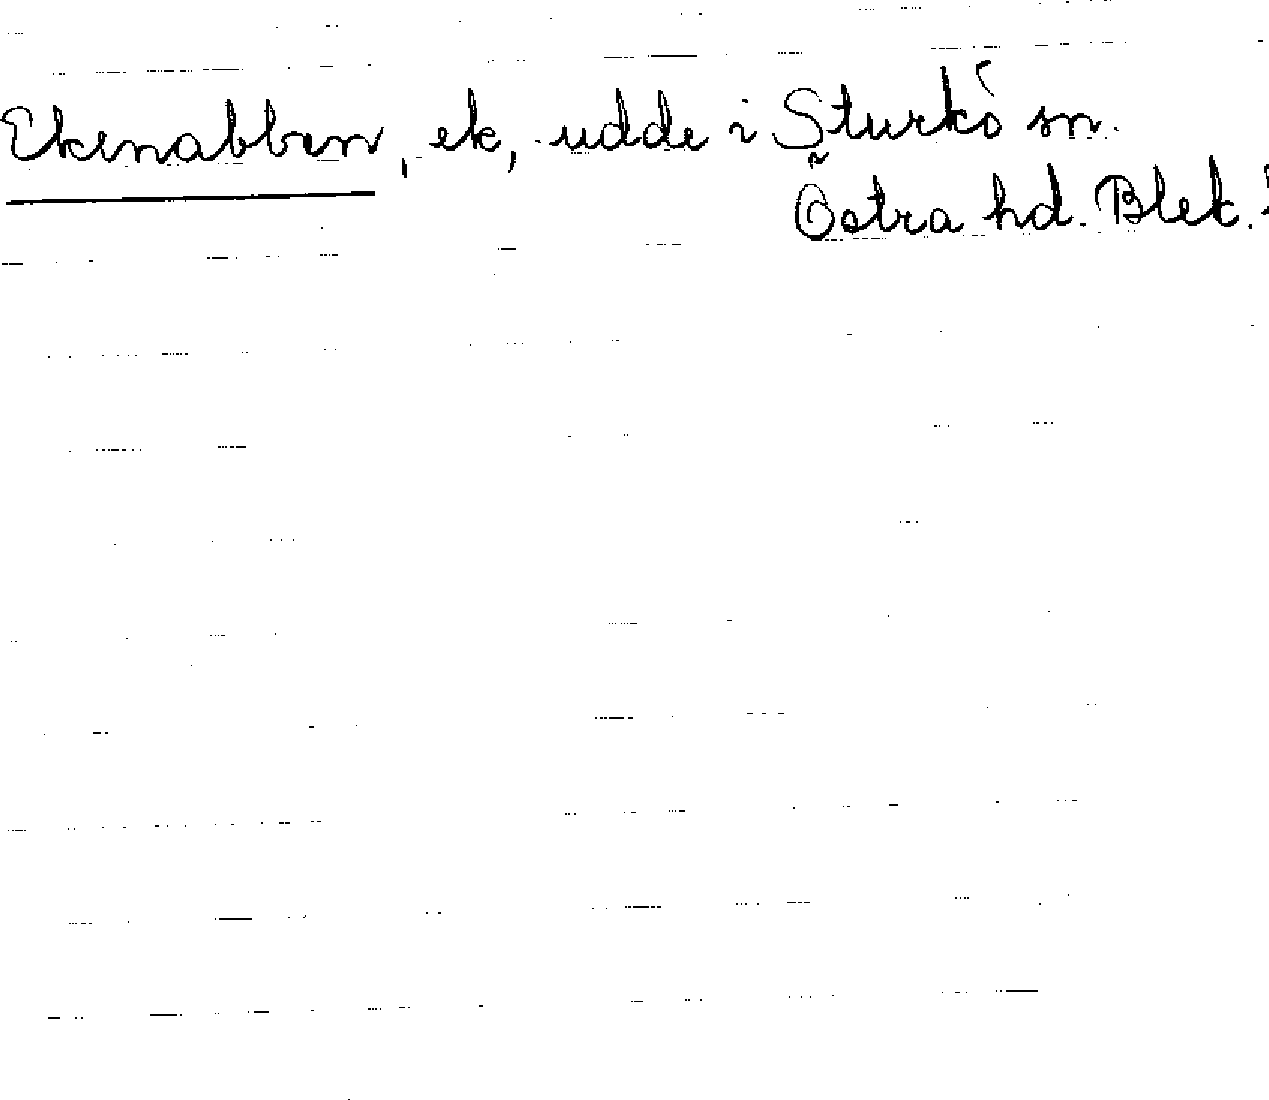 Ekenabben, ek, udde i Sturkö sn.
Östra hd. Blek.